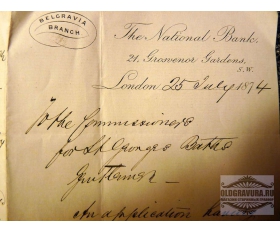 BELGRAVIA
BRANCH
The National Bank,
21, Grosvenor Gardens,
S.W.
London 25 July 1874
To the Commissioners
for St George's Baths
Gentlemen —
An application having
OLDGRAVURA.RU